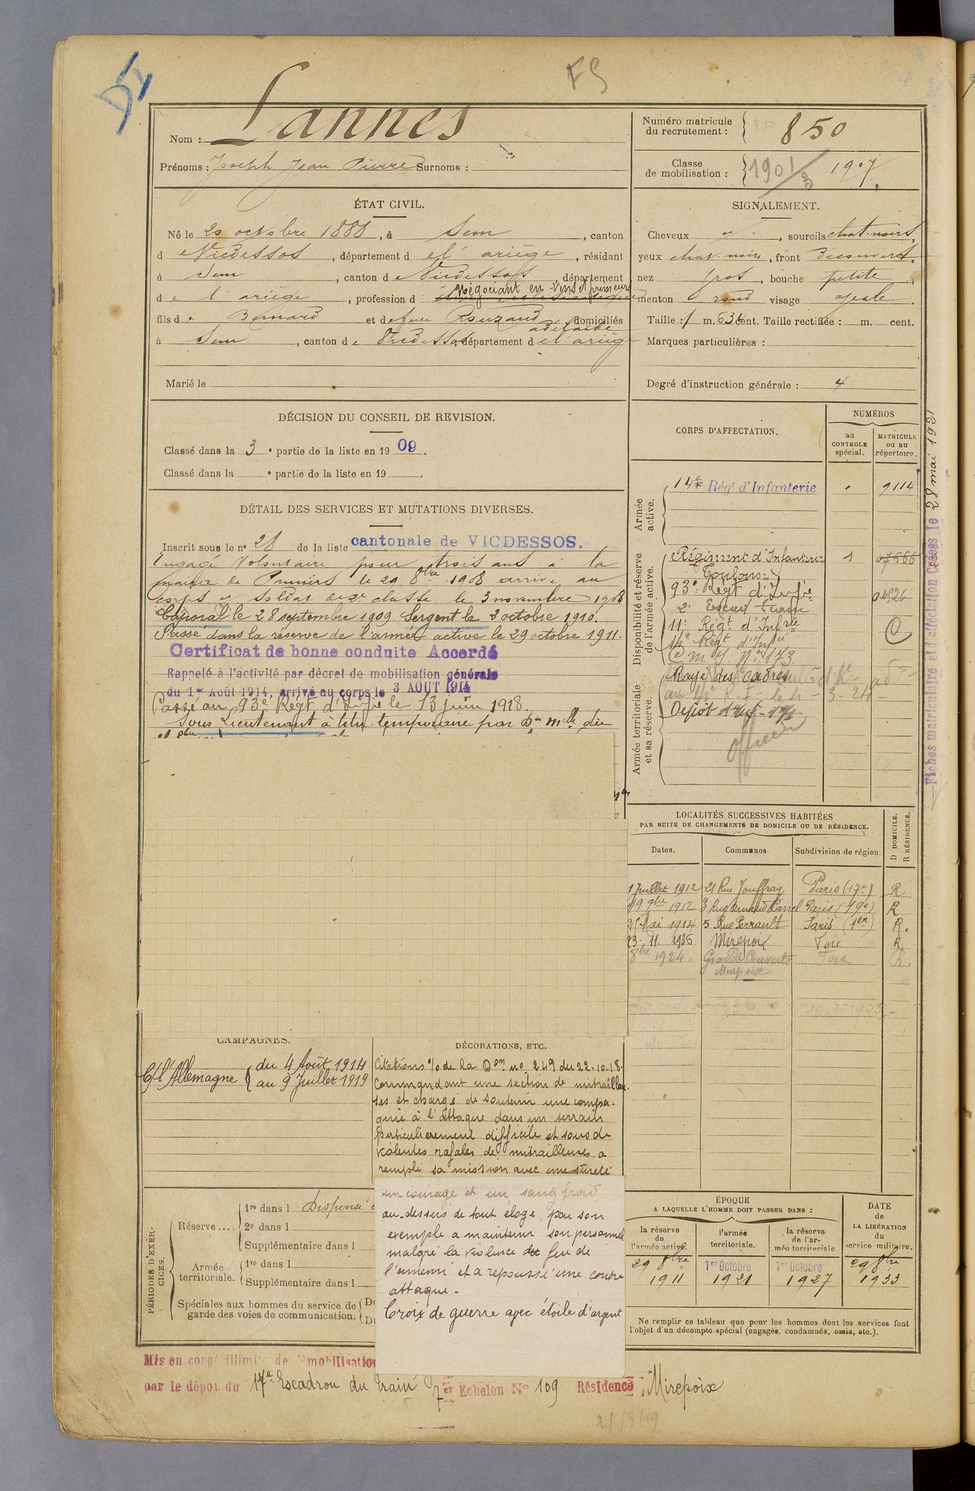 F S
Nom : Lannes
Prénoms : Joseph Jean Pierre Surnoms :
Numéro matricule du recrutement : 850
Classe de mobilisation : 1901/3 1907
ÉTAT CIVIL.
Né le 20 octobre 1888, à Sem, canton
d e Vicdessos, département d e l'ariège, résidant
à Sem, canton d e Vicdessos, département
d e l'ariège, profession d négociant en vins et primeurs
fils d e Bernard et de feue Rouzaud adelaïde domiciliés
à Sem, canton d e Vicdessos département d e l'ariège
Marié le
SIGNALEMENT.
Cheveux , sourcils chat. noirs,
yeux chat. noirs, front découvert,
nez gros, bouche petite
menton rond visage ovale
Taille : 1 m. 63 cent. Taille rectifiée : m. cent.
Marques particulières :
Degré d'instruction générale : 4
DÉCISION DU CONSEIL DE REVISION.
Classé dans la 3e partie de la liste en 1909.
Classé dans la e partie de la liste en 19 .
DÉTAIL DES SERVICES ET MUTATIONS DIVERSES.
Inscrit sous le n° 28 de la liste cantonale de VICDESSOS.
Engagé volontaire pour trois ans à la
mairie de Pamiers le 29 8bre 1908 arrivé au
corps et soldat de 2e classe le 3 novembre 1908
Caporal le 28 septembre 1909. Sergent le 3 octobre 1910.
Passé dans la réserve de l'armée active le 29 octobre 1911.
Certificat de bonne conduite Accordé
Rappelé à l'activité par décret de mobilisation générale
du 1er Août 1914, arrivé au corps le 3 AOUT 1914
Passé au 93e Régt d'Infie le 13 juin 1918.
Sous Lieutenant à titre temporaire par Don mlle du
CORPS D'AFFECTATION.
NUMÉROS
au CONTROLE spécial.
MATRICULE ou au répertoire.
Armée active.
14e Régt d'Infanterie 9114
Disponibilité et réserve de l'armée active.
Régiment d'Infanterie 1 07566
Toulouse
93e Régt d'Infie
11e Régt d'Infie C
14e Régt d'Infie
C m N° 173
Armée territoriale et sa réserve.
Rayé des cadres
Dépôt d'Inf. 171
Officier
Fiches matriculaire et d'affectation Créées le 28 mai 1921
LOCALITÉS SUCCESSIVES HABITÉES
PAR SUITE DE CHANGEMENTS DE DOMICILE OU DE RÉSIDENCE.
Dates. Communes Subdivision de région. D DOMICILE. R RÉSIDENCE.
1 Juillet 1912 21 Rue Jouffroy Paris (17e) R
19 9bre 1912 3 Rue Armand Carrel Paris (19e) R
Mai 1914 5 Rue Perrault Paris (1er) R.
23. 11. 1936 Mirepoix Foix R
8bre 1924 Grands Couverts Foix R.
Mirepoix
CAMPAGNES.
C/ l'Allemagne { du 4 Août 1914
au 9 Juillet 1919
DÉCORATIONS, ETC.
Citations o/o de la Don no 249 du 22.10.18.
Commandant une section de mitrailleu
ses et chargé de soutenir une compa-
gnie à l'attaque dans un terrain
particulièrement difficile et sous de
violentes rafales de mitrailleuses, a
rempli sa mission avec une sûreté
un courage et un sang froid
au-dessus de tout éloge, par son
exemple a maintenu son personnel
malgré la violence du feu de
l'ennemi et a repoussé une contre
attaque.
Croix de guerre avec étoile d'argent
PÉRIODES D'EXERCICES.
Réserve .... 1re dans l Dispensé
2e dans l
Supplémentaire dans l
Armée territoriale. 1re dans l
Supplémentaire dans l
Spéciales aux hommes du service de
garde des voies de communication.
ÉPOQUE
A LAQUELLE L'HOMME DOIT PASSER DANS :
la réserve de l'armée active. l'armée territoriale. la réserve de l'armée territoriale.
DATE de LA LIBÉRATION du service militaire.
29 8bre 1911 1er Octobre 1921 1er Octobre 1927 29 8bre 1933
Ne remplir ce tableau que pour les hommes dont les services font
l'objet d'un décompte spécial (engagés, condamnés, omis, etc.).
Mis en congé illimité de démobilisation
par le dépôt du 17e Escadron du train 7er Echelon N° 109 Résidence Mirepoix
21/8/19